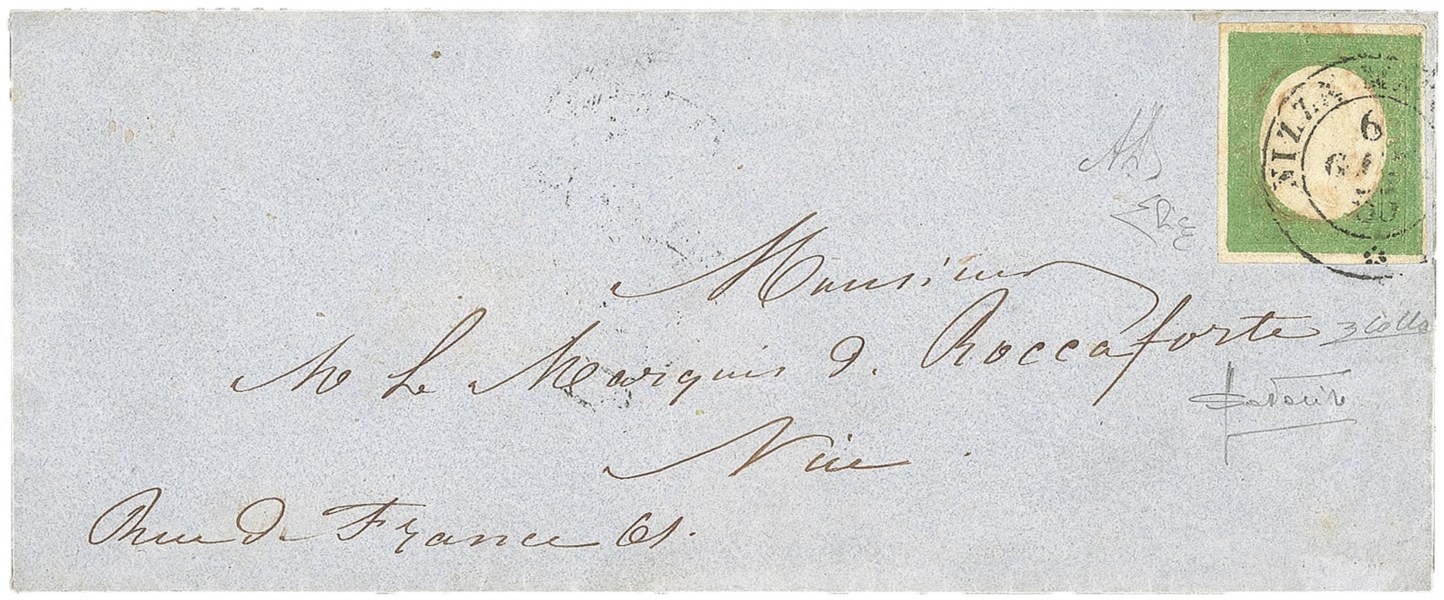 NIZZA MA
6
GEN
55
Monsieur
Mr Le Marquis d. Roccaforte
Nice
Rue de France 61.